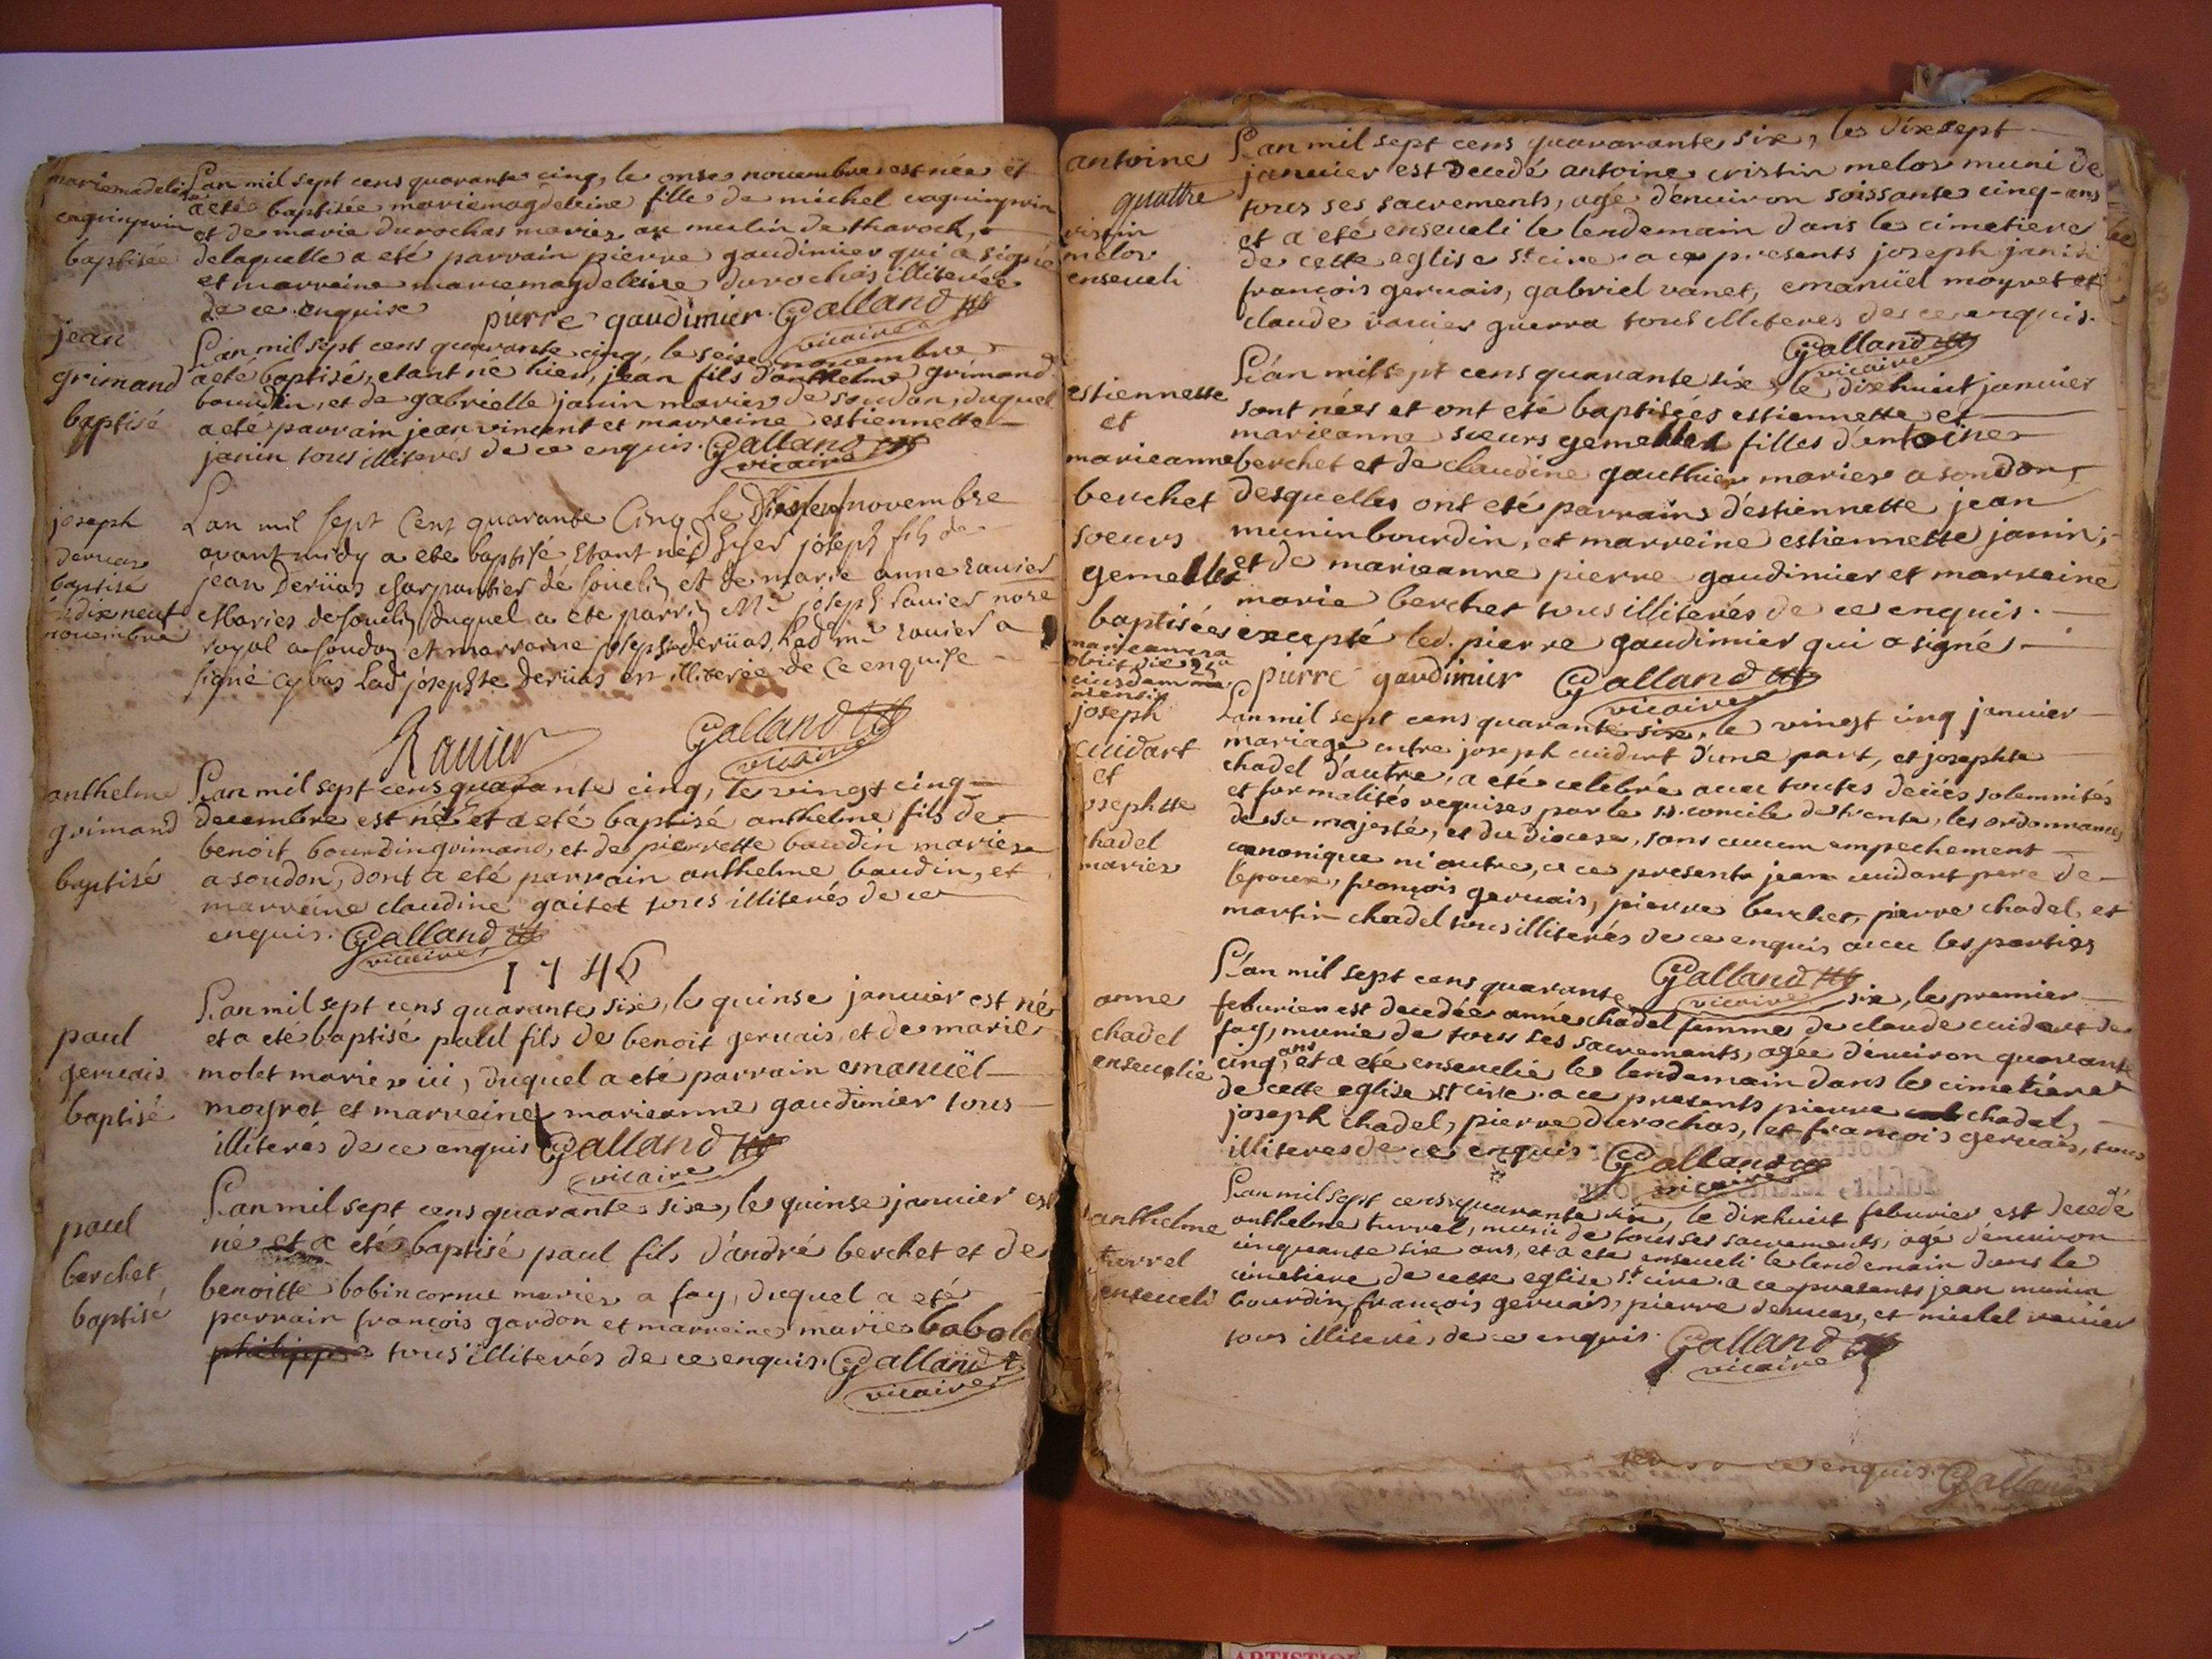 mariemadeleine
caquinprin
baptisée
L'an mil sept cens quarante cinq, le onse nouembre est née et
a eté baptisée mariemagdeleine fille de michel caquinprin
et de marie durochas mariez au mulin de tharoch,
delaquelle a eté parrain pierre gaudimier qui a signé
et marreine mariemagdeleine durochas illiterée
de ce enquise pierre gaudimier Galland
vicaire
jean
grimand
baptisé
L'an mil sept cens quarante cinq, le seise nouembre
a eté baptisé, etant né hier, jean fils d'anthelme grimand
bourdin, et de gabrielle janin mariez de soudon, duquel
a eté parrain jean vincent et marreine estiennette
janin tous illiterés de ce enquis. Galland
vicaire
joseph
deruas
baptisé
dixneuf
nouembre
L'an mil sept Cent quarante Cinq le Dixneuf novembre
avant midy a ete baptisé Etant né d'hyer joseph fils de
jean Deruas charpantier de souclin et de marie anne rauier
Maries de souclin Duquel a ete parrin Me joseph Rauier nore
royal a soudon et marraine josephte deruas, Led. me rauier a
signé cy bas Lad. josephte Deruas illiterée de Ce enquise
Rauier Galland
vicaire
anthelme
grimand
baptisé
L'an mil sept cens quarante cinq, le vingt cinq
decembre est né et a eté baptisé anthelme fils de
benoit bourdin grimand, et de pierrette baudin mariez
a soudon, dont a eté parrain anthelme baudin, et
marreine claudine gaitet tous illiterés de ce
enquis. Galland
vicaire
1746
paul
geruais
baptisé
L'an mil sept cens quarante six, le quinse januier est né
et a eté baptisé paul fils de benoit geruais, et de marie
molet mariez ici, duquel a eté parrain emanuël
moyret et marreine marieanne gaudimier tous
illiterés de ce enquis Galland
vicaire
paul
berchet
baptisé
L'an mil sept cens quarante six, le quinse januier est
né et a eté baptisé paul fils d'andré berchet et de
benoitte bobin cornu mariez a fay, duquel a eté
parrain françois gardon et marreine marie
philippe tous illiterés de ce enquis. Galland
vicaire
antoine
quattre
cristin
melos
enseueli
L'an mil sept cens quararante six, le dixsept
januier est decedé antoine cristin melos muni de
tous ses sacrements, agé d'enuiron soissante cinq ans
et a eté enseueli le lendemain dans le cimetiere
de cette eglise st cire a ce presents joseph janin
françois geruais, gabriel vanet, emanuël moyret et
claude rauier guerra tous illiteres de ce enquis.
Galland
vicaire
estiennette
et
marieanne
berchet
soeurs
gemelles
baptisées
marieanna
obiit die 25a
eiusdem
mensis
L'an mil sept cens quarante six, le dixhuict januier
sont nées et ont eté baptisées estiennette et
marieanne soeurs gemelles filles d'antoine
berchet et de claudine gauthier mariez a soudon,
desquelles ont eté parrains d'estiennette jean
munin bourdin, et marreine estiennette janin;
et de marieanne pierre gaudimier et marreine
marie berchet tous illiterés de ce enquis.
excepté led. pierre gaudimier qui a signé.
pierre gaudimier Galland
vicaire
joseph
cuidart
et
josephtte
chadel
mariez
L'an mil sept cens quarante six, le vingt cinq januier
mariage entre joseph cuidart d'une part, et josephte
chadel d'autre, a eté celebré auec toutes deües solemnités
et formalités requises par le st. concile de trente, les ordonnances
de sa majesté, et du diocese, sans aucun empechement
canonique ni autre, a ce presents jean cuidart pere de
l'epoux, françois geruais, pierre berchet, pierre chadel, et
martin chadel tous illiterés de ce enquis auec les parties
Galland
vicaire
anne
chadel
enseuelie
L'an mil sept cens quarante six, le premier
feburier est decedée anne chadel femme de claude cuidart de
fay, munie de tous ses sacrements, agée d'enuiron quarante
cinq ans, et a eté enseuelie le lendemain dans le cimetiere
de cette eglise st cire. a ce presents pierre chadel,
joseph chadel, pierre durochas, et françois geruais, tous
illiteres de ce enquis. Galland
vicaire
anthelme
turrel
enseueli
L'an mil sept cens quarante six, le dixhuict feburier est decedé
anthelme turrel, muni de tous ses sacrements, agé d'enuiron
cinquante six ans, et a eté enseueli le lendemain dans le
cimetiere de cette eglise st cire. a ce presents jean munin
bourdin, françois geruais, pierre deruas, et michel rauier
tous illiterés de ce enquis. Galland
vicaire
ce enquis. Galland
ARTISTIQUE